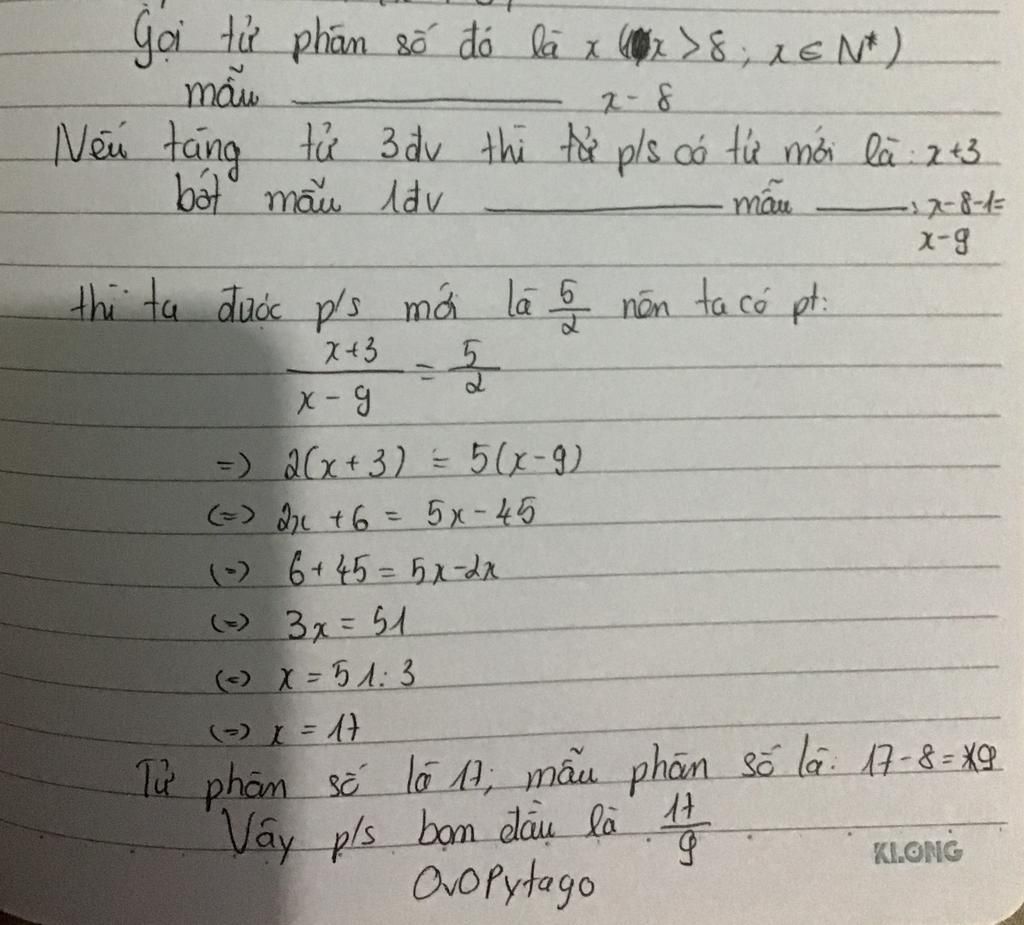 Gọi tử phân số đó là x (x > 8; x ∈ N*)
mẫu ——— x - 8
Nếu tăng tử 3đv thì tử p/s có tử mới là: x+3
bớt mẫu 1đv ——— mẫu ———: x-8-1=
x-9
thì ta được p/s mới là 5/2 nên ta có pt:
x+3/x-9 = 5/2
=> 2(x+3) = 5(x-9)
(=) 2x + 6 = 5x - 45
(=) 6 + 45 = 5x - 2x
(=) 3x = 51
(=) x = 51 : 3
(=) x = 17
Tử phân số là 17; mẫu phân số là: 17-8=9
Vậy p/s bạn đầu là 17/9
KLONG
OvOPytago